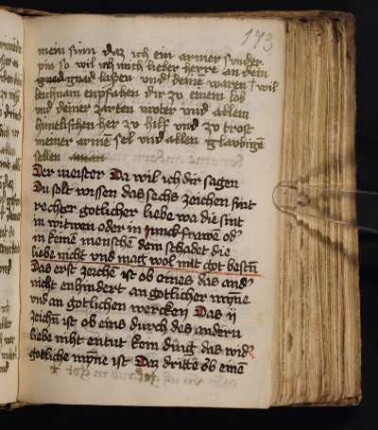 173
mein sinn daz ich ein armer sunder
pin so wil ich mich lieber herre an dein
gnad lassen und deine waren wil
leichnam enpfahen dir zu einem lob
und deiner zarten muter und allem
himelischen her zu hilf und zu trost
meiner armē sel und allen glaubigē
selen
Der meister Da wil ich dir sagen
Du solt wissen das sechs zeichen sint
rechter gotlicher liebe wa die sint
in witwen oder in junckfrawen od
in keinē menschē dem schadet die
liebe nicht und mag wol mit got bestn̄
Das erst zeichē ist ob eines das and
nicht enhindert an gotlicher mȳne
und an gotlichen wercken Das ij
zeichn̄ ist ob eins durch des andern
liebe niht entut kein ding das wid
gotliche mȳne ist Daz dritte ob einē